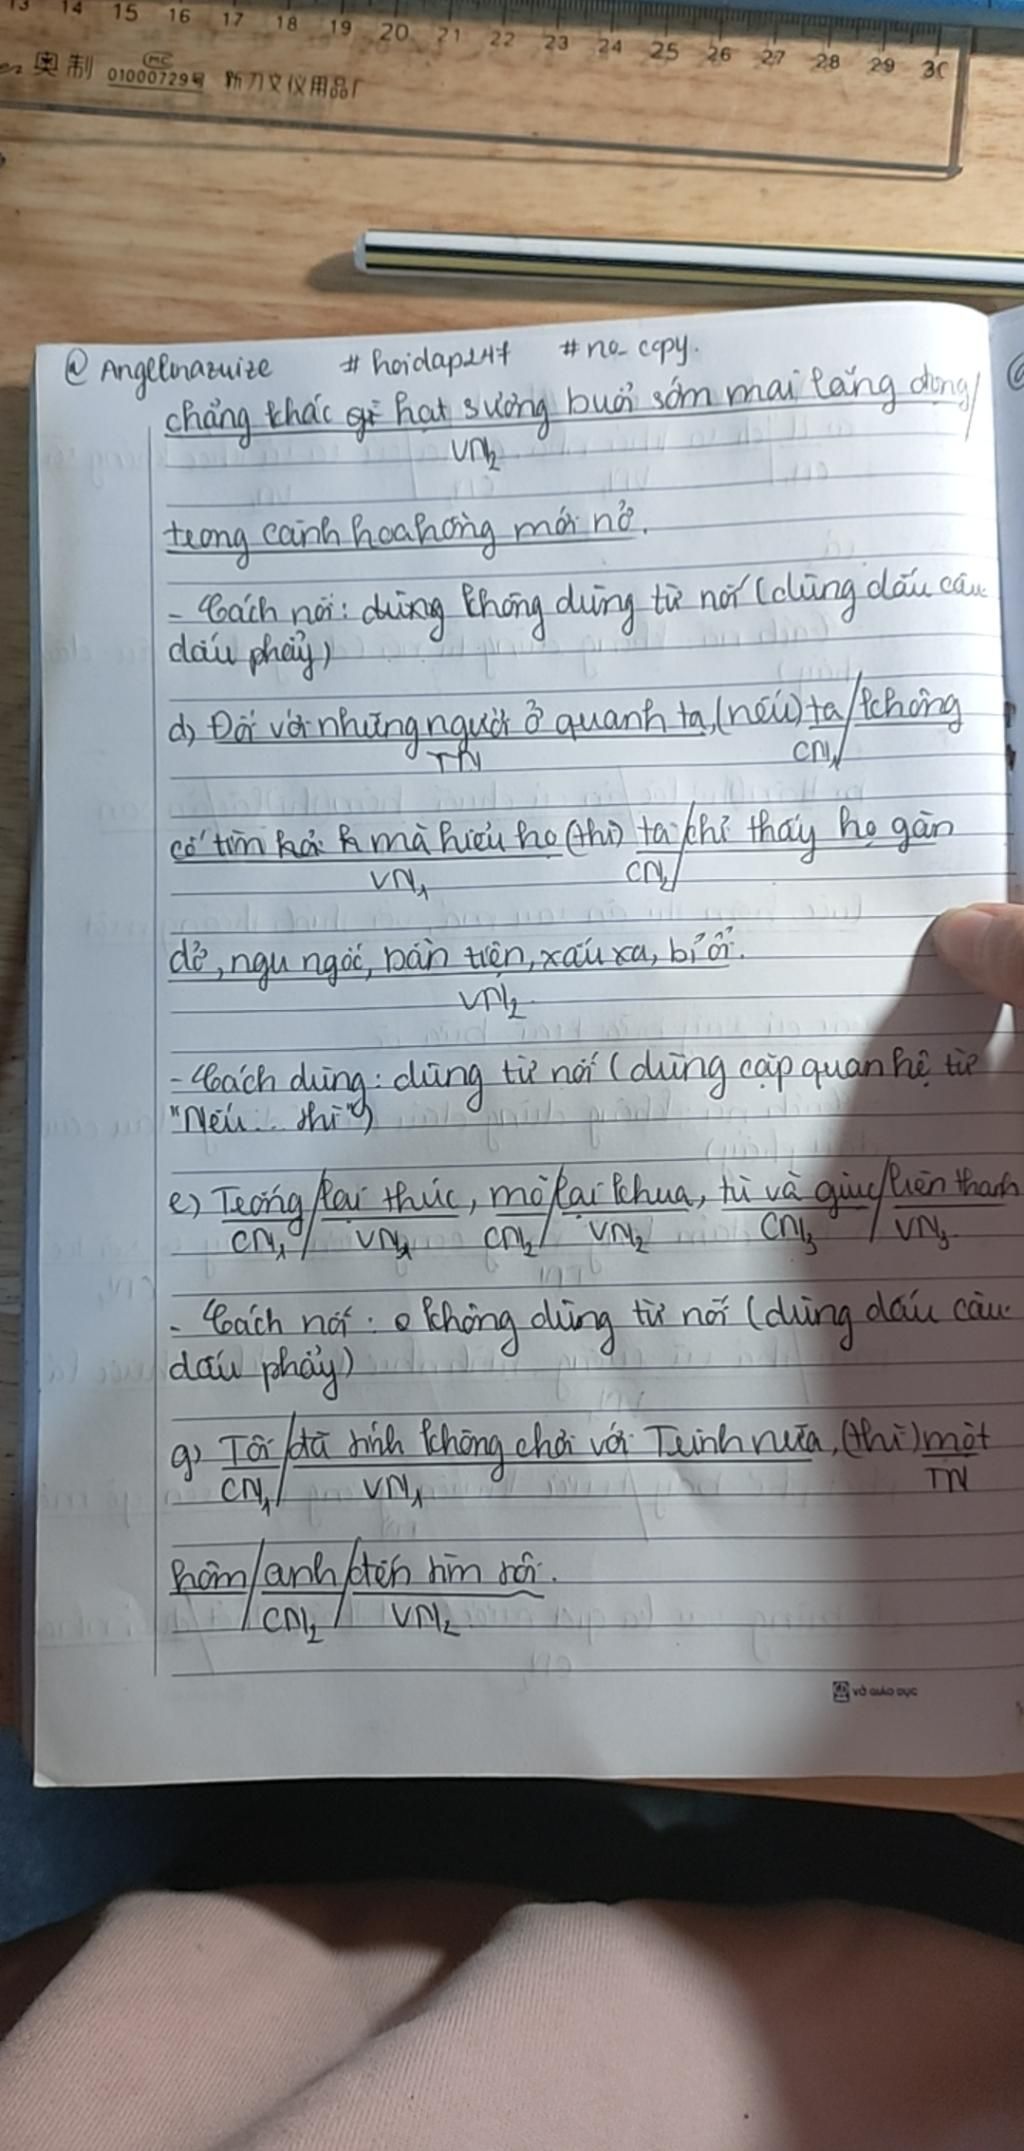 13 14 15 16 17 18 19 20 21 22 23 24 25 26 27 28 29 30
奥制 MC 01000729号 新力文仪用品厂
@ Angelinazuize # hoidap247 # no_copy.
chẳng khác gì hạt sương buổi sớm mai lắng đọng/
VN2
trong cánh hoa hồng mới nở.
- Cách nối: dùng không dùng từ nối (dùng dấu câu
dấu phẩy)
d) Đối với những người ở quanh ta, (nếu) ta/không
TN CN1
cố tìm hả h mà hiểu họ (thì) ta/chỉ thấy họ gàn
VN1 CN2
dở, ngu ngốc, bần tiện, xấu xa, bỉ ổi.
VN2
- Cách dùng: dùng từ nối (dùng cặp quan hệ từ
"Nếu... thì")
e) Trống/lại thúc, mõ/lại khua, tù và giục/liên thanh
CN1 VN1 CN2 VN2 CN3 VN3
- Cách nối: không dùng từ nối (dùng dấu câu
dấu phẩy)
g) Tôi/đã tính không chơi với Trinh nữa, (thì) một
CN1 VN1 TN
hôm/anh/đến tìm tôi.
CN2 VN2
vở giáo dục